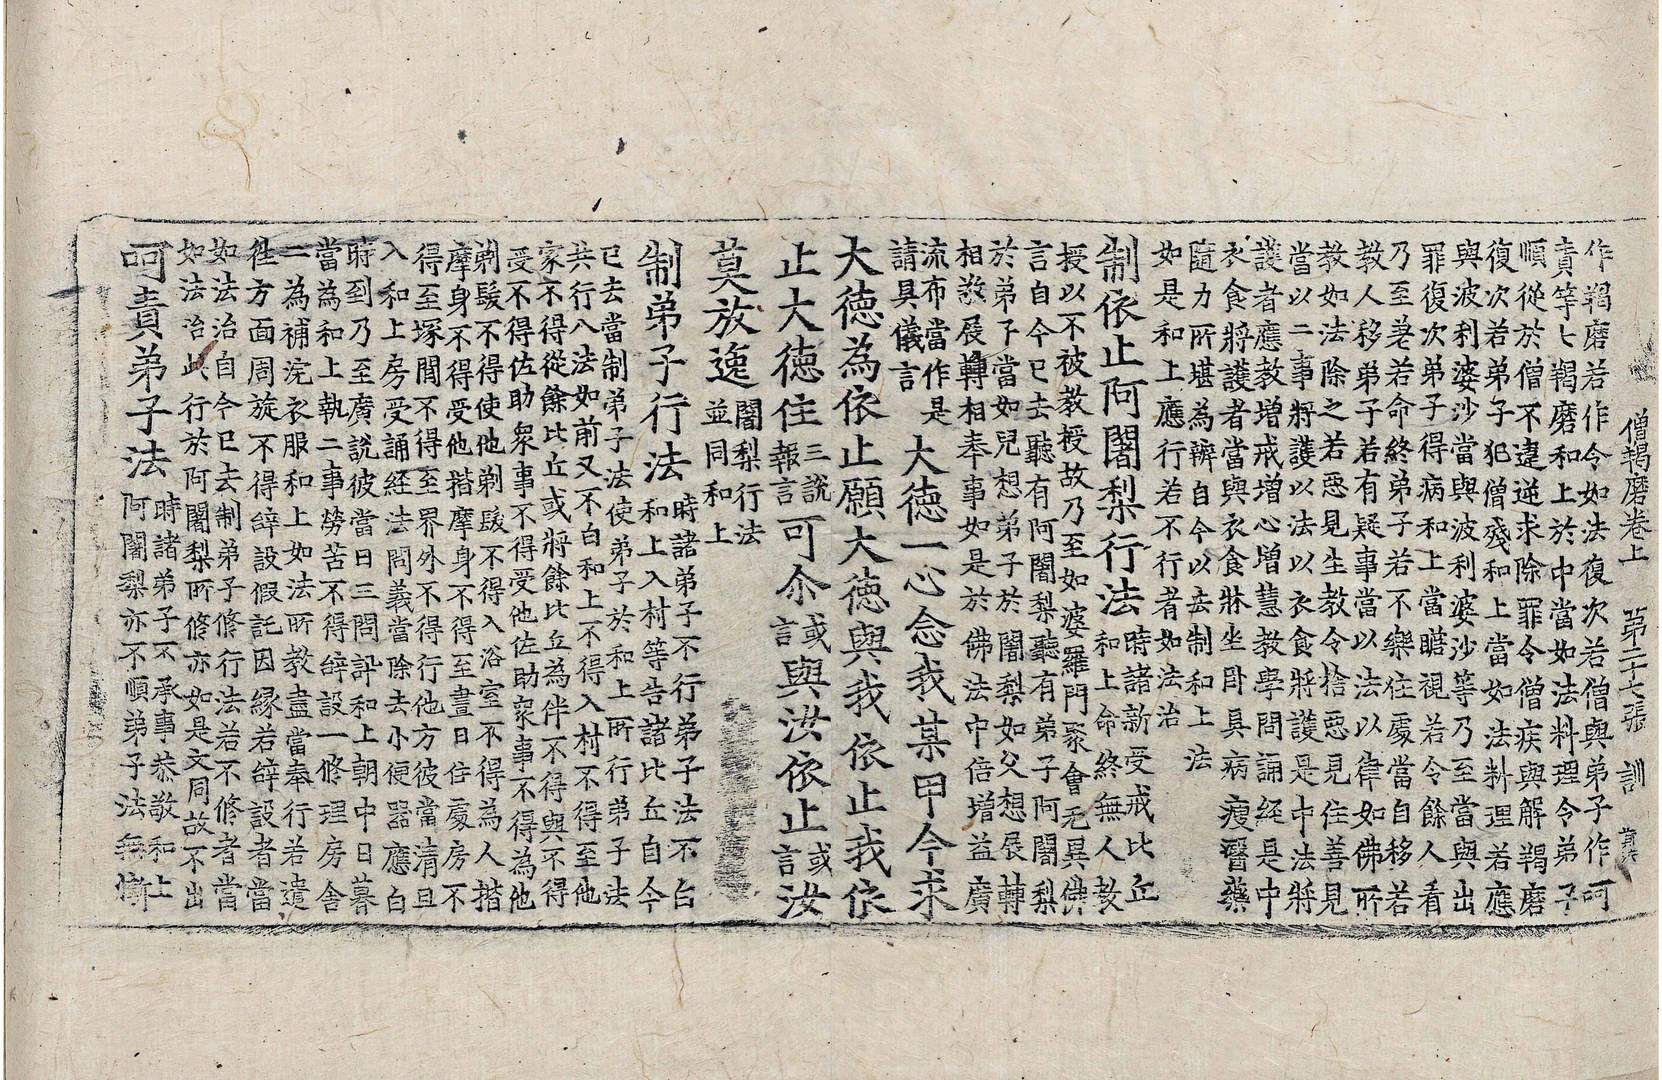 僧羯磨卷上 第二十七張 訓
作羯磨若作令如法復次若僧與弟子作呵
責等七羯磨和上於中當如法料理令弟子
順從於僧不違逆求除罪令僧疾與解羯磨
復次若弟子犯僧殘和上當如法料理若應
與波利婆沙當與波利婆沙等乃至當與出
罪復次弟子得病和上當瞻視若令餘人看
乃至差若命終弟子若不樂住處當自移若
教人移弟子若有疑事當以法以律如佛所
教如法除之若惡見生教令捨惡見住善見
當以二事將護以法以衣食將護是中法將
護者應教增戒增心增慧教學問誦經是中
衣食將護者當與衣食牀坐卧具病瘦醫藥
隨力所堪為辦自今以去制和上法
如是和上應行若不行者如法治
制依止阿闍梨行法 時諸新受戒比丘
和上命終無人教
授以不被教授故乃至如婆羅門聚會无異佛
言自今已去聽有阿闍梨聽有弟子阿闍梨
於弟子當如兒想弟子於闍梨如父想展轉
相敬展轉相奉事如是於佛法中倍增益廣
流布當作是
請具儀言 大德一心念我某甲今求
大德為依止願大德與我依止我依
止大德住 三說
報言 可尒 或
言 與汝依止 或
言 汝
莫放逸 闍梨行法
並同和上
制弟子行法 時諸弟子不行弟子法不白
和上入村等告諸比丘自今
已去當制弟子法使弟子於和上所行弟子法
共行八法如前又不白和上不得入村不得至他
家不得從餘比丘或將餘比丘為伴不得與不得
受不得佐助衆事不得受他佐助衆事不得為他
剃髮不得使他剃髮不得入浴室不得為人揩
摩身不得受他揩摩身不得至晝日住處房不
得至塚間不得至界外不得行他方彼當清旦
入和上房受誦經法問義當除去小便器應白
時到乃至廣說彼當日三問訊和上朝中日暮
當為和上執二事勞苦不得辞設一修理房舍
二為補浣衣服和上如法所教盡當奉行若遣
徃方面周旋不得辞設假託因緣若辞設者當
如法治自今已去制弟子修行法若不修者當
如法治此行於阿闍梨所修亦如是文同故不出
呵責弟子法 時諸弟子不承事恭敬和上
阿闍梨亦不順弟子法無慚